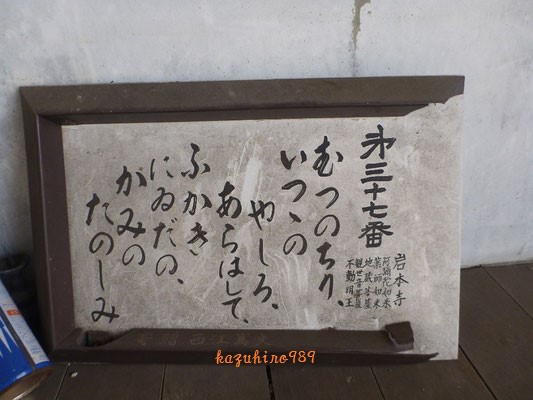 第三十七番
岩本寺
阿彌陀如来
薬師如来
地蔵菩薩
観世音菩薩
不動明王
むつのちり、
いつゝの
やしろ、
あらはして、
ふかき
にゐだの、
かみの
たのしみ
kazuhiro989